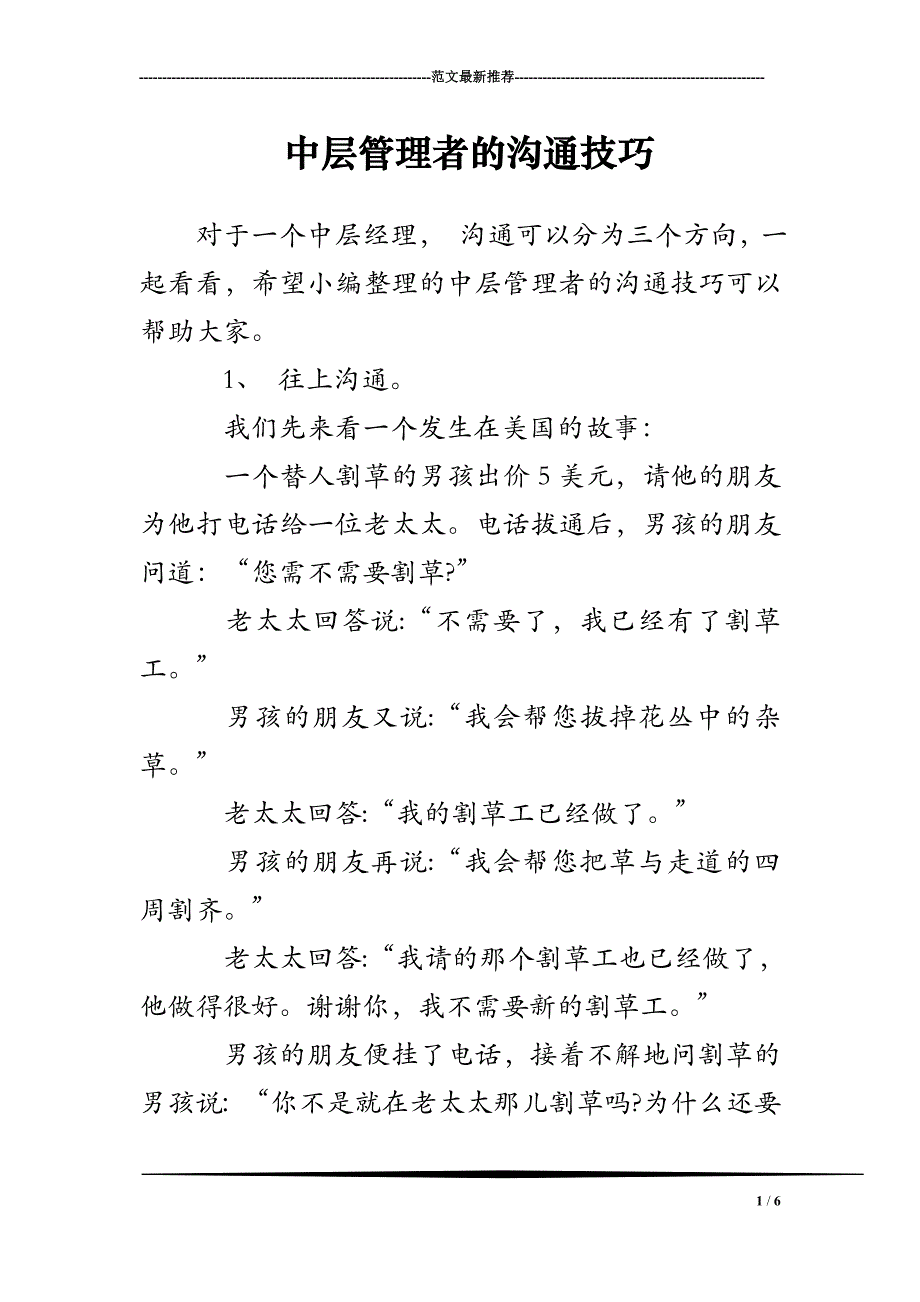 ---------------------------------------------------------------范文最新推荐------------------------------------------------------
中层管理者的沟通技巧
对于一个中层经理， 沟通可以分为三个方向，一
起看看，希望小编整理的中层管理者的沟通技巧可以
帮助大家。
1、 往上沟通。
我们先来看一个发生在美国的故事：
一个替人割草的男孩出价 5 美元，请他的朋友
为他打电话给一位老太太。电话拔通后，男孩的朋友
问道：“您需不需要割草?”
老太太回答说:“不需要了，我已经有了割草
工。”
男孩的朋友又说:“我会帮您拔掉花丛中的杂
草。”
老太太回答:“我的割草工已经做了。”
男孩的朋友再说:“我会帮您把草与走道的四
周割齐。”
老太太回答:“我请的那个割草工也已经做了，
他做得很好。谢谢你，我不需要新的割草工。”
男孩的朋友便挂了电话，接着不解地问割草的
男孩说: “你不是就在老太太那儿割草吗?为什么还要
1 / 6